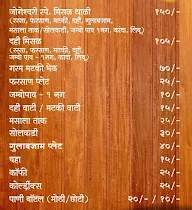 जोगेश्वरी स्पे. मिसळ थाळी १५०/-
(रस्सा, फरसाण, मटकी, दही, गुलाबजाम,
मसाला ताक/सोलकढी, जम्बो पाव १ नग, कांदा, लिंबू)
दही मिसळ १०५/-
(रस्सा, फरसाण, मटकी, दही,
जम्बो पाव - १ नग, कांदा, लिंबू)
गरम मटकी भेळ ७०/-
फरसाण प्लेट २५/-
जम्बोपाव - १ नग १०/-
दही वाटी / मटकी वाटी १५/-
मसाला ताक २०/-
सोलकढी ३०/-
गुलाबजाम प्लेट ४०/-
चहा १५/-
कॉफी २५/-
कोल्ड्रींक्स २०/-
पाणी बॉटल (मोठी/छोटी) २०/- / १०/-